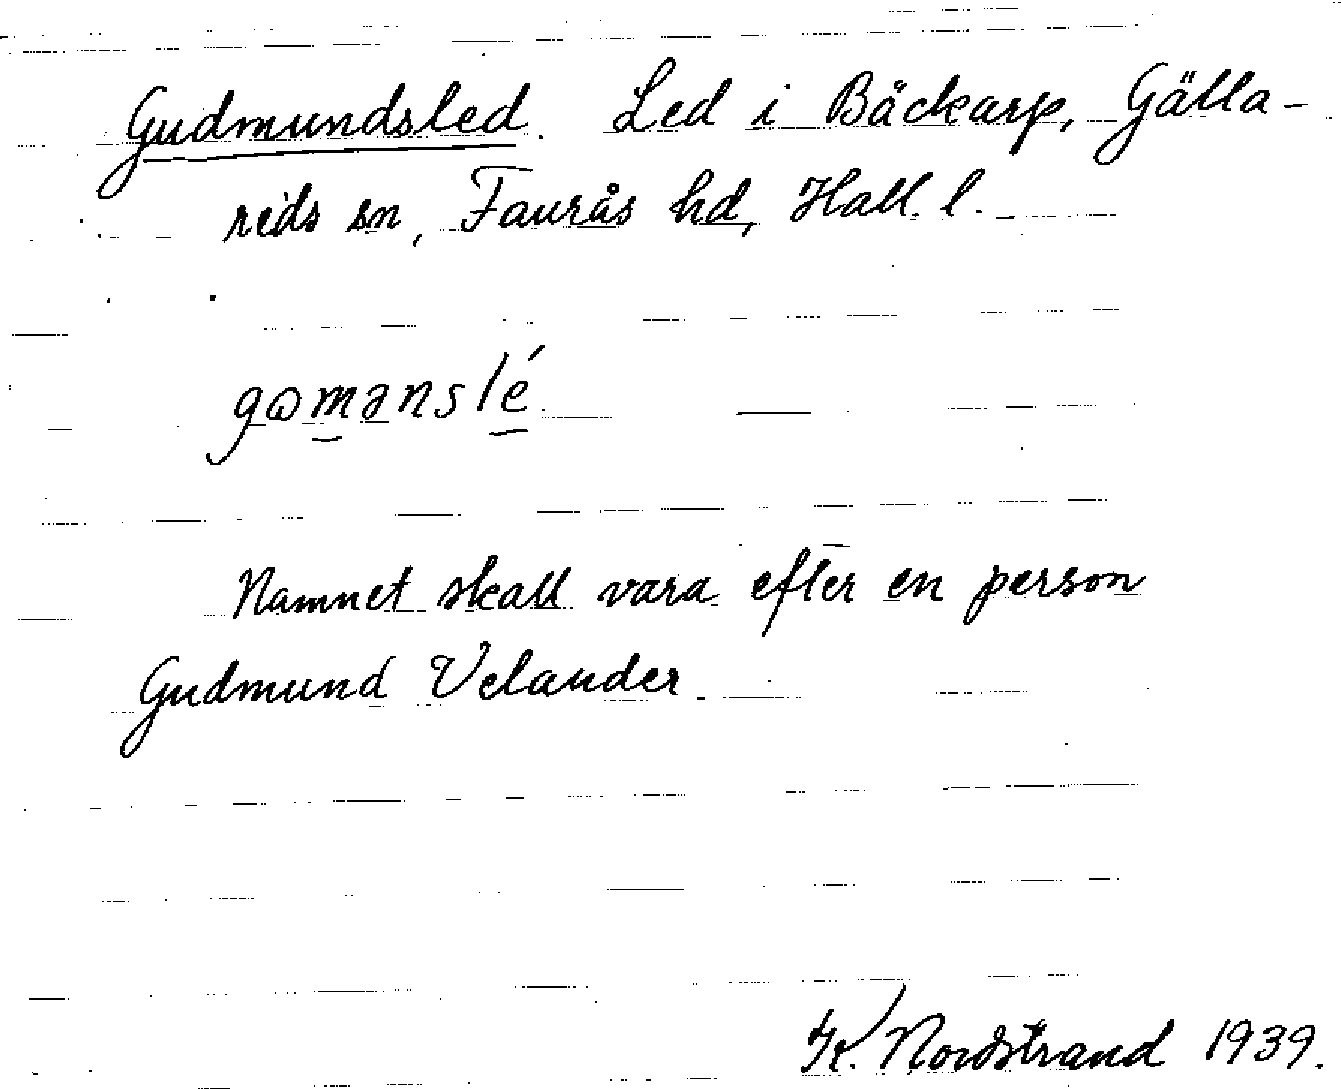 Gudmundsled. Led i Bäckarp, Gälla-
reds sn, Faurås hd, Hall. l.
gɷmənslé
Namnet skall vara efter en person
Gudmund Velander.
K. Nordstrand 1939.